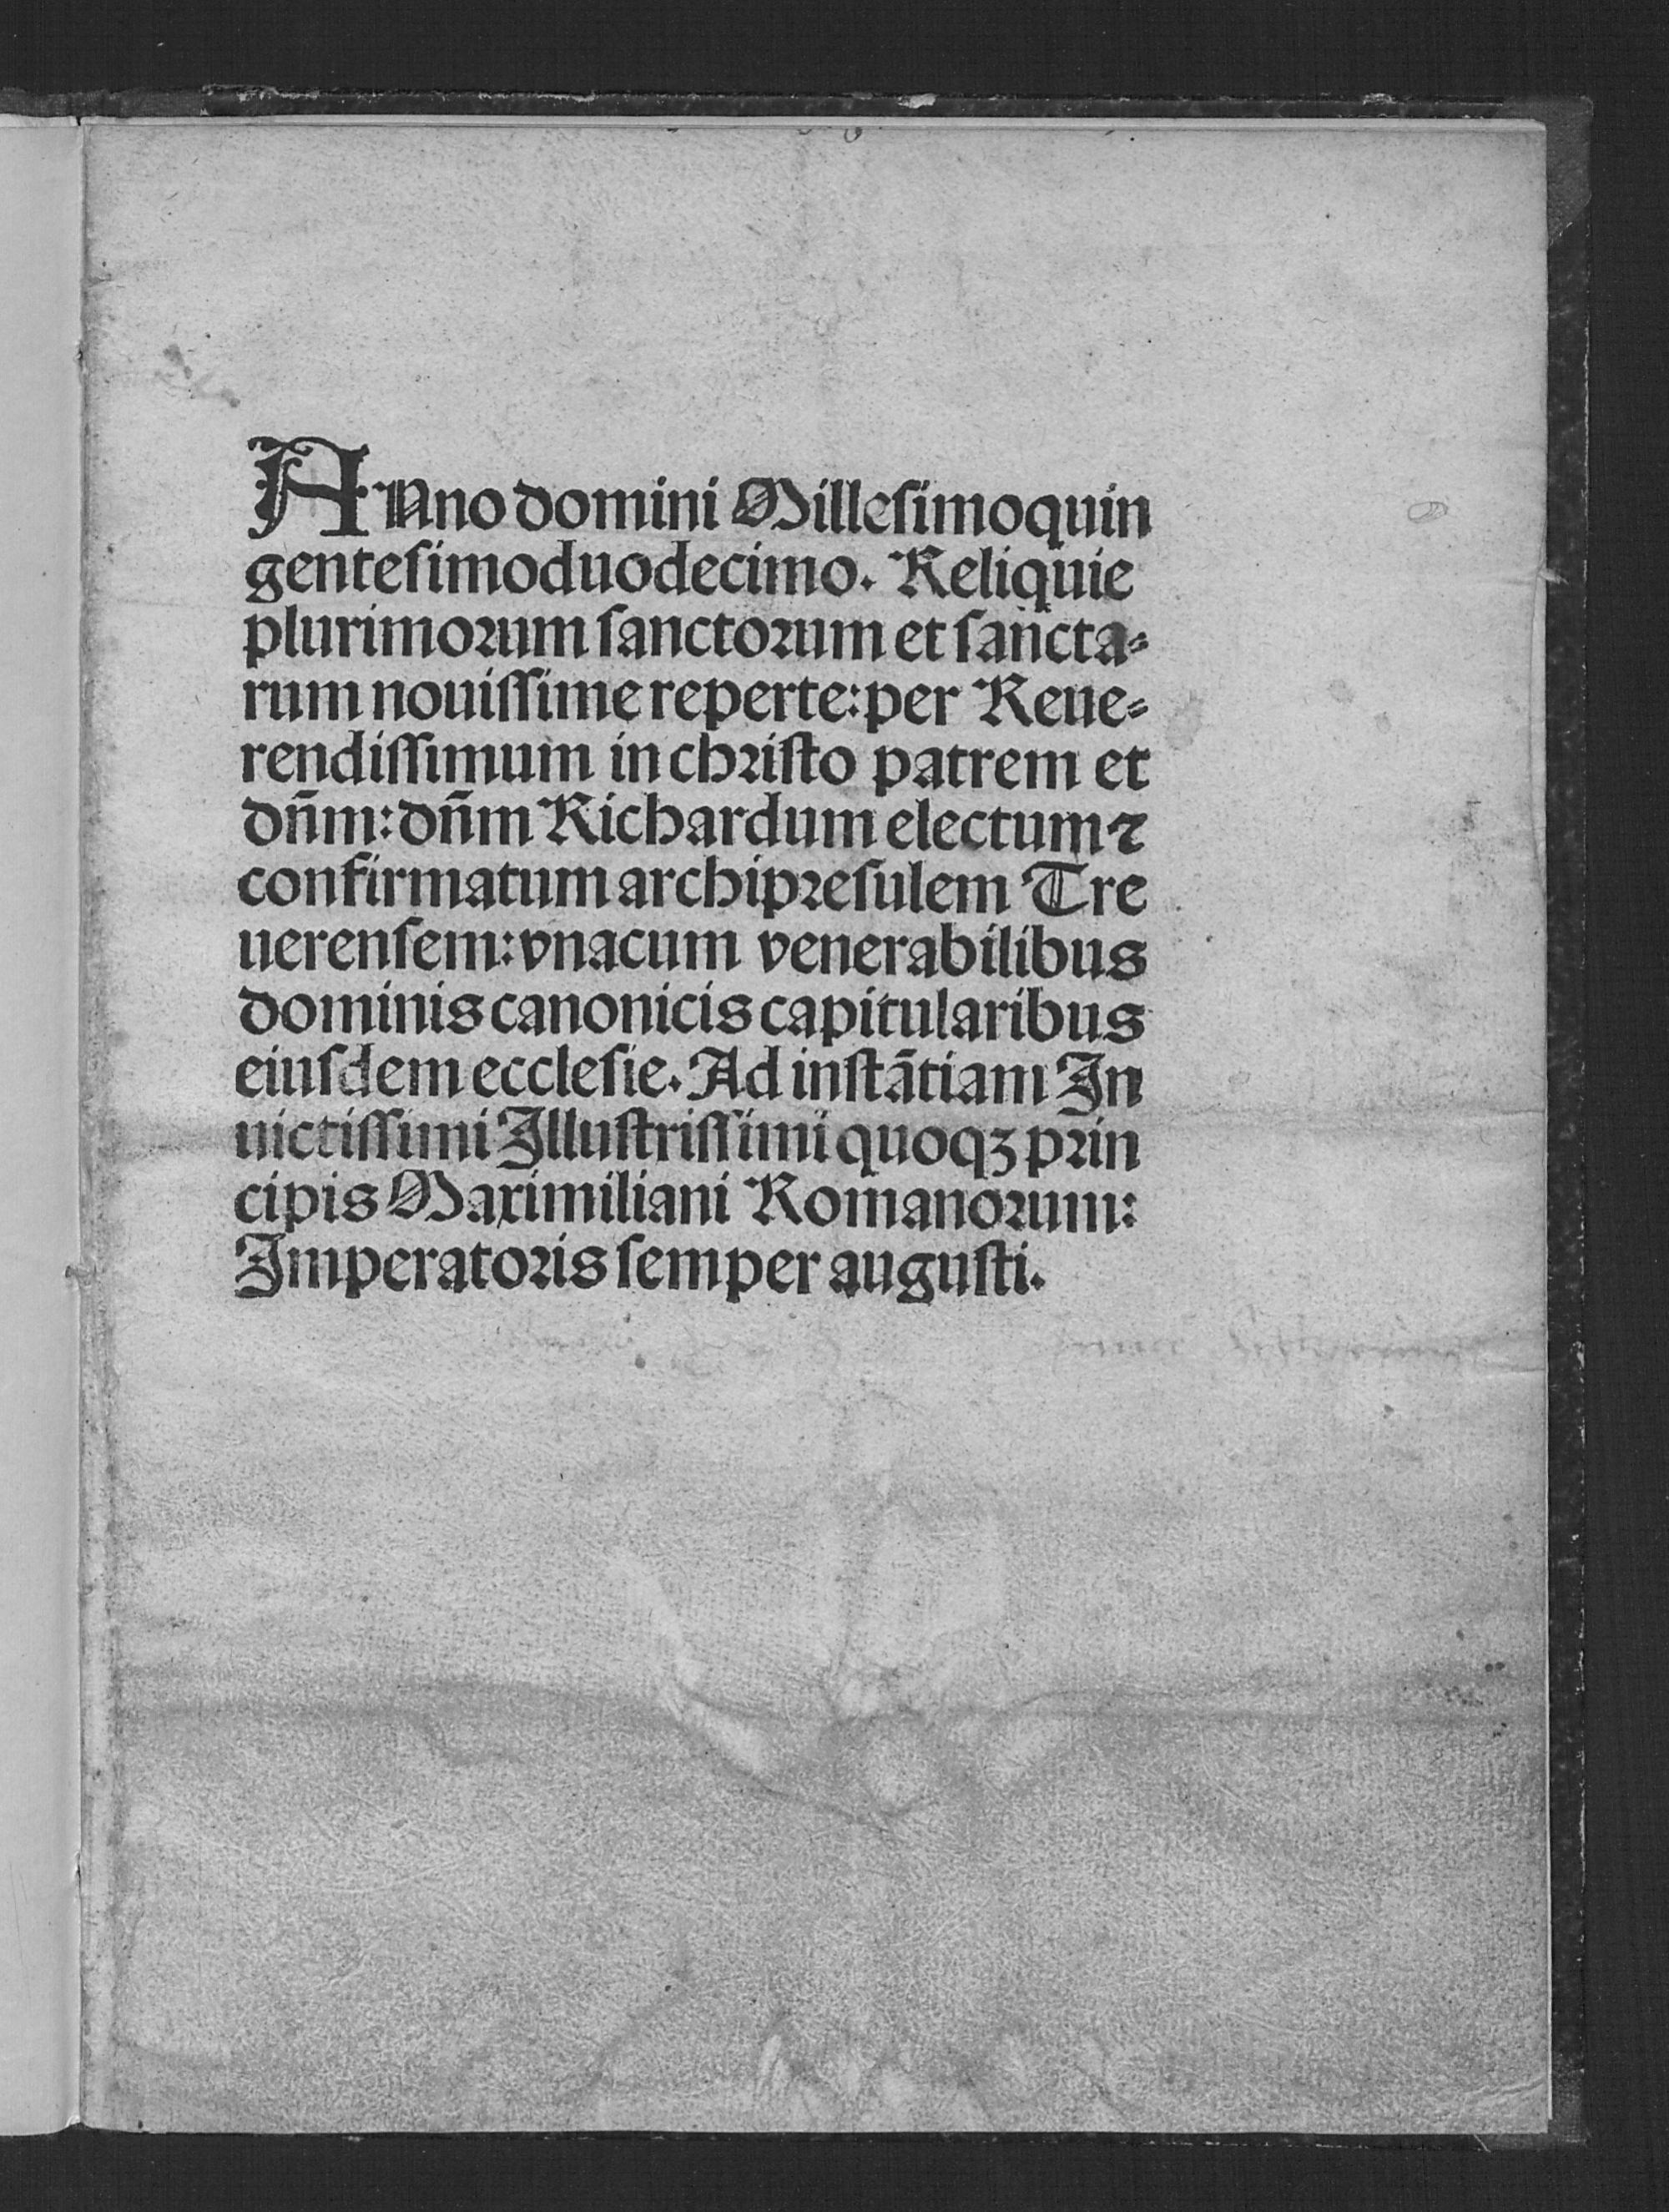 ANno domini Milleſimoquin
genteſimoduodecimo. Reliquie
plurimoꝛum ſanctoꝛum et ſancta⸗
rum nouiſſime reperte: per Reue⸗
rendiſſimum in chꝛiſto patrem et
dn̄m: dn̄m Richardum electum ⁊
confirmatum archipꝛeſulem Tre
uerenſem: vnacum venerabilibus
dominis canonicis capitularibus
eiuſdem eccleſie. Ad inſtātiam In
uictiſſimi Illuſtriſſimi quoqꝫ pꝛin
cipis Maximiliani Romanoꝛum:
Imperatoꝛis ſemper auguſti.